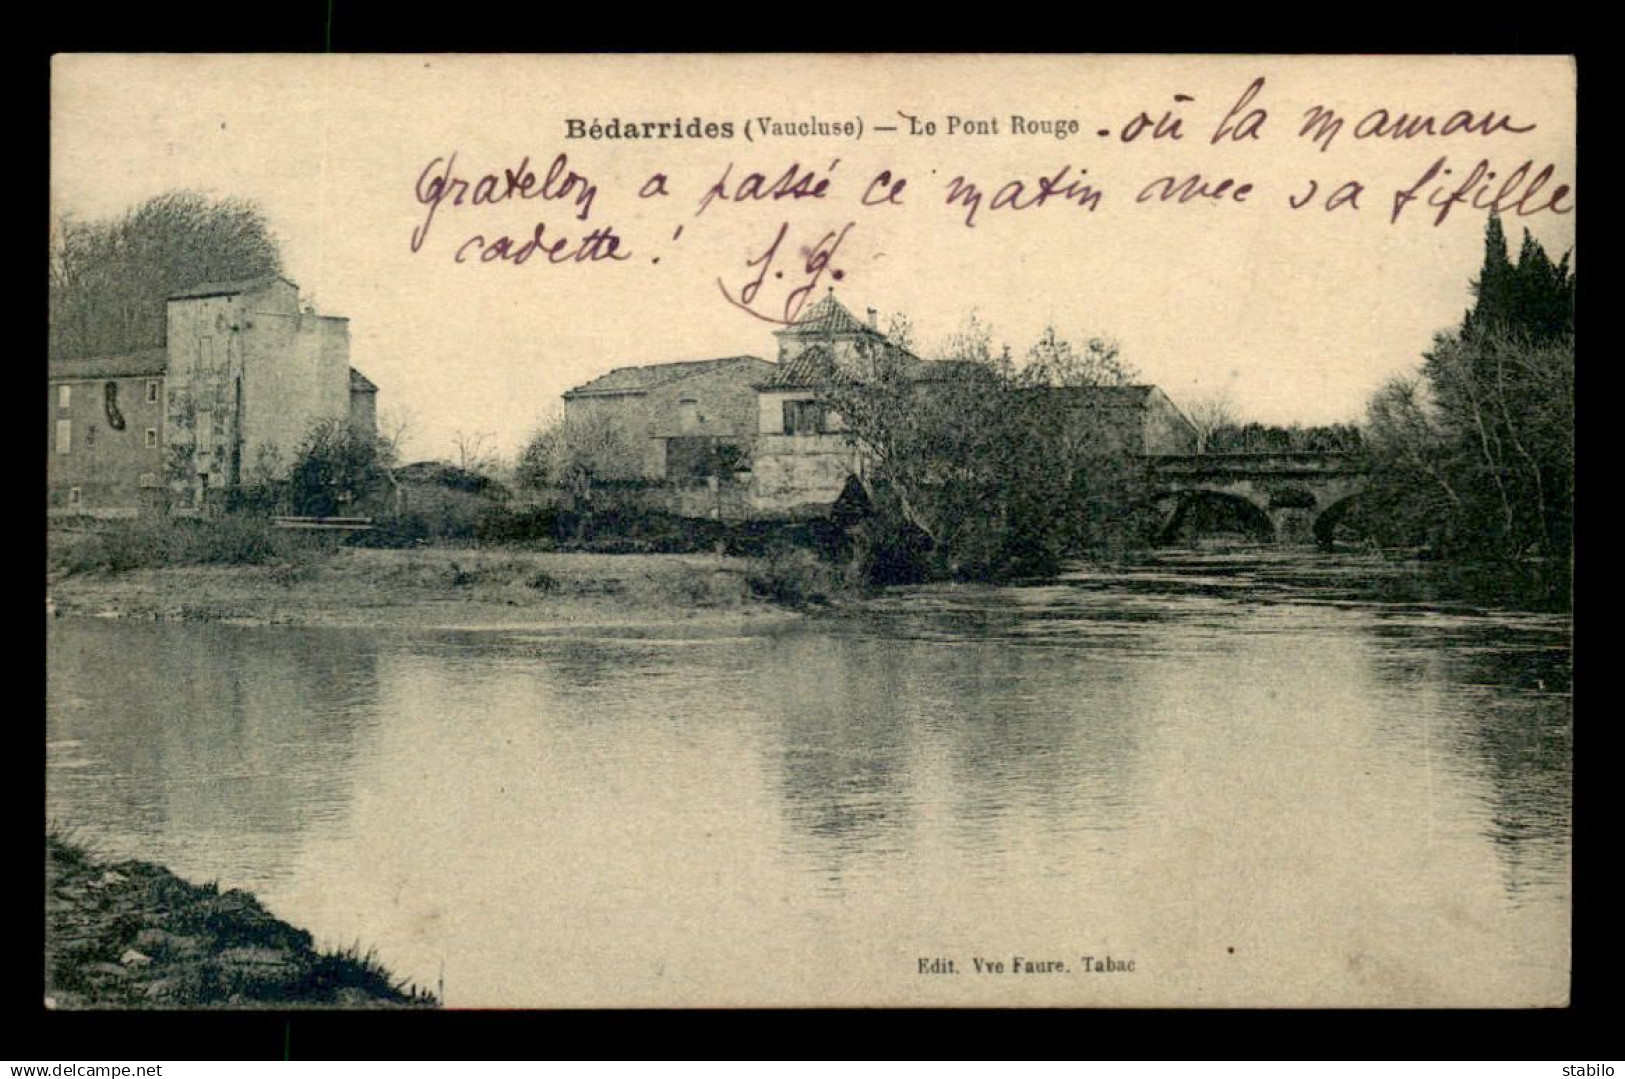 Bédarrides (Vaucluse) — Le Pont Rouge - où la maman
Gratelon a passé ce matin avec sa fifille
cadette ! J. G.
Edit. Vve Faure. Tabac
www.delcampe.net
stabilo